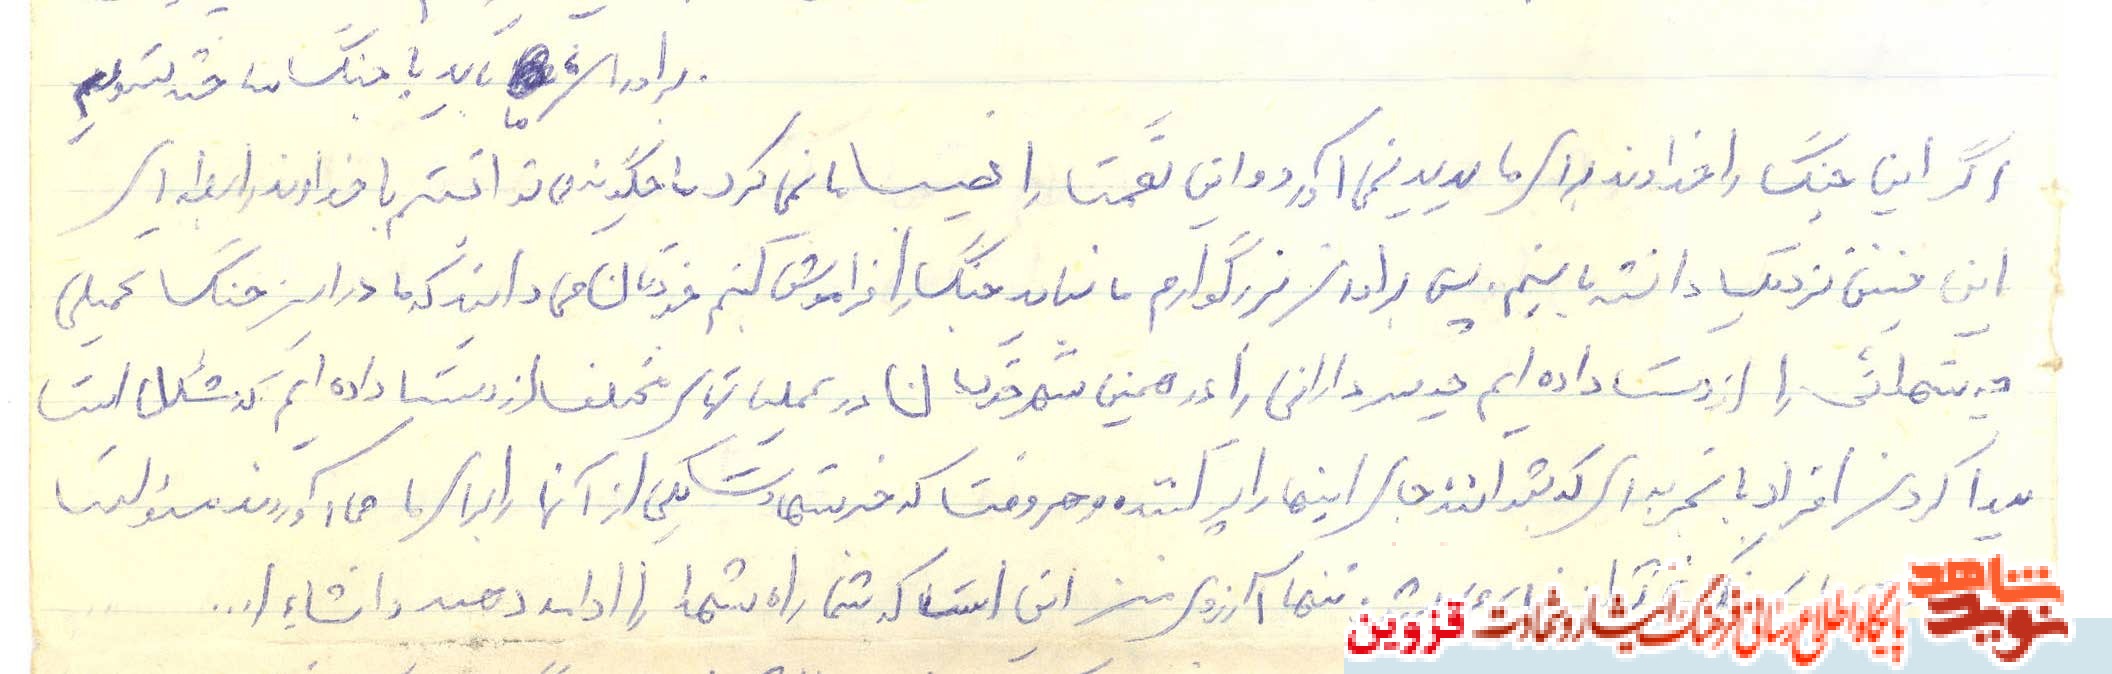 برادران ما باید با جنگ ساخته شویم
اگر این جنگ را خداوند برای ما پدید نمی آورد و این نعمت را نصیب ما نمی کرد ما چگونه می توانستیم با خداوند رابطه ای
این چنین نزدیک داشته باشیم. پس برادران بزرگوارم ما نباید جنگ را فراموش کنیم خودتان می دانید که ما در این جنگ تحمیلی
چه شهدائی را از دست داده ایم چه سردارانی را در همین شهر خودمان در عملیاتهای مختلف از دست داده ایم که مشکل است
پیدا کردن افراد با تجربه ای که بتوانند جای اینها را پر کنند و هر وقت که خبر شهادت یکی از آنها را برای ما می آوردند مسئولیت
تنها آرزوی من این است که شما راه شهدا را ادامه دهید انشاء ا...
شاهد
نوید
پایگاه اطلاع رسانی فرهنگ ایثار و شهادت قزوین